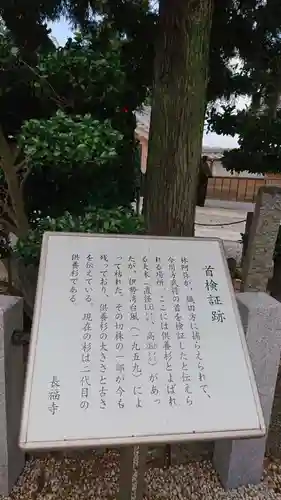 首検証跡
林阿弥が、織田方に捕らえられて、
今川方武将の首を検証したと伝えら
れる場所。ここには供養杉とよばれ
る大木(直径
があっ
たが、伊勢湾台風(一九五九)によ
って枯れた。その切株の一部が今も
残っており、供養杉の大きさと古さ
を伝えている。現在の杉は二代目の
供養杉である。
長福寺